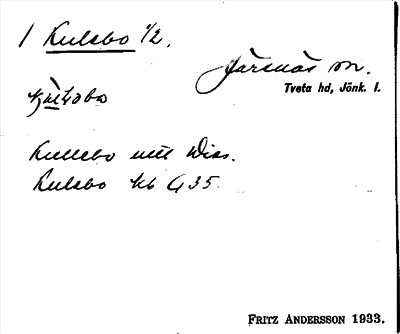 1 Kulsbo 1/2.
Järsnäs sn.
Tveta hd, Jönk. l.
Kullebo utt Diss.
Kulsbo kb G 35.
FRITZ ANDERSSON 1933.